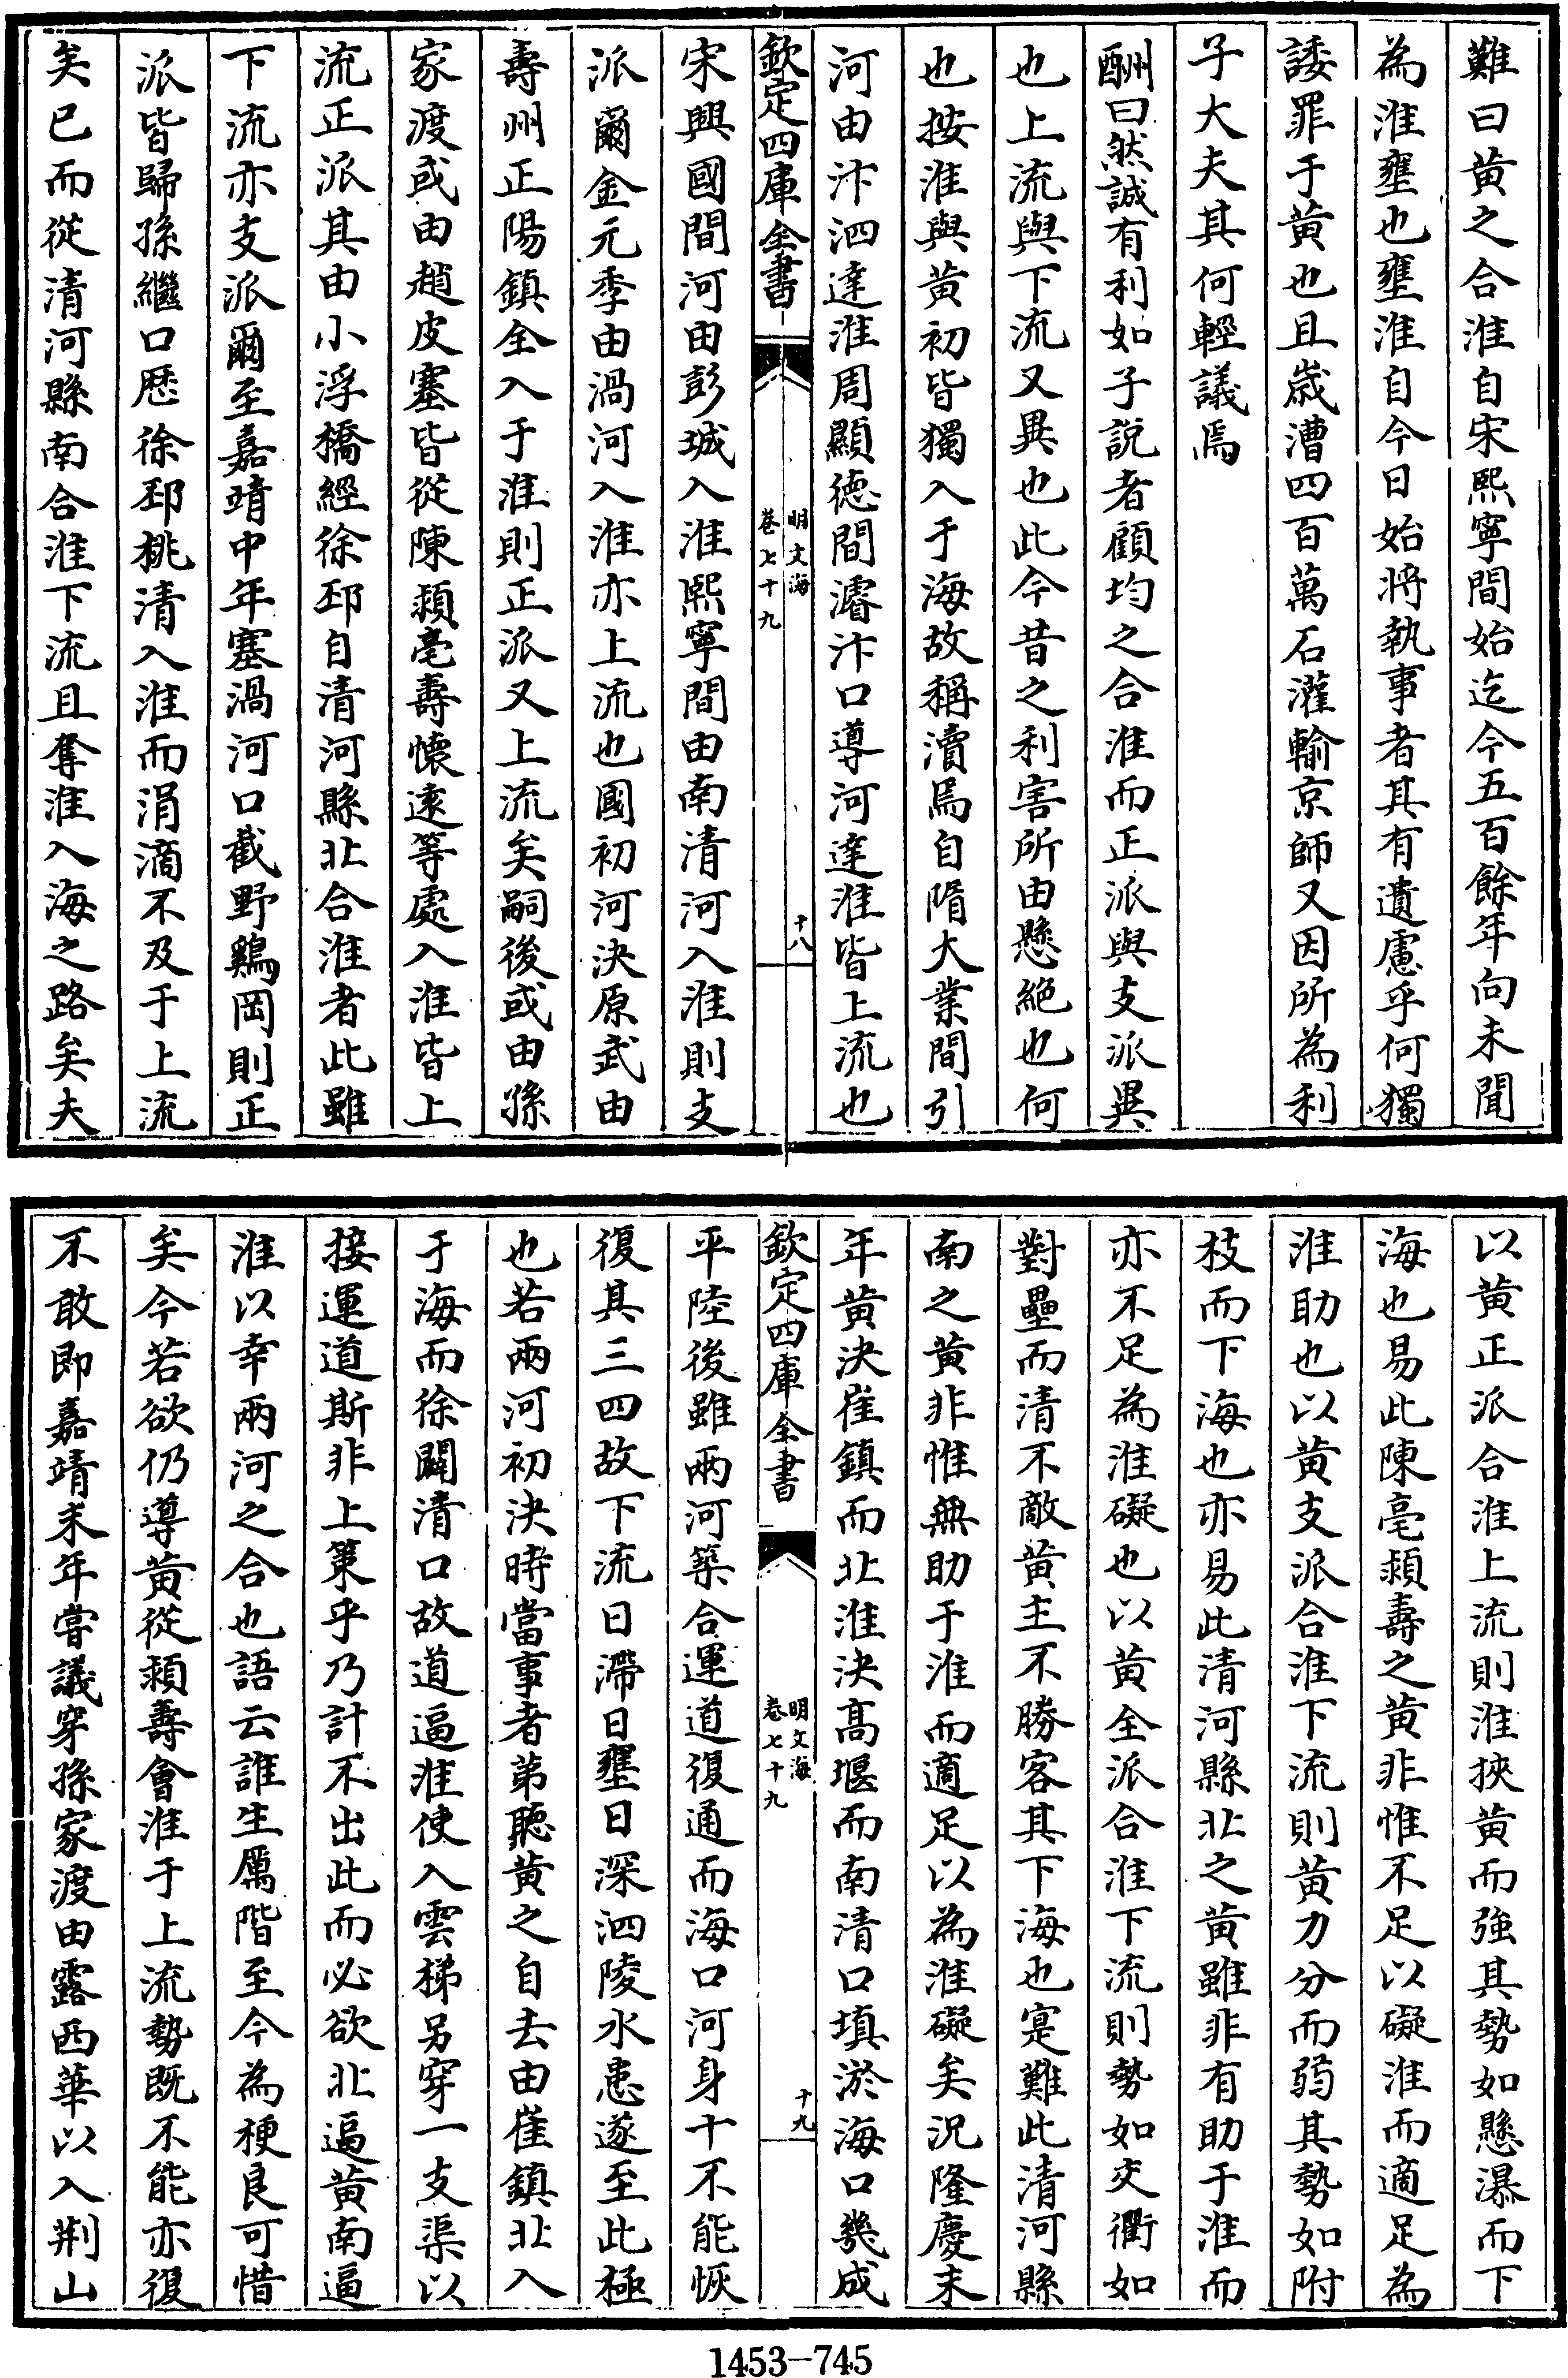 難曰黄之合淮自宋熙寧間始迄今五百餘年向未聞
為淮壅也壅淮自今日始將執事者其有遺慮乎何獨
諉罪于黄也且歲漕四百萬石灌輸京師又因所為利
子大夫其何輕議焉
酬曰然誠有利如子說者顧均之合淮而正派與支派異
也上流與下流又異也此今昔之利害所由懸絕也何
也按淮與黄初皆獨入于海故稱瀆焉自隋大業間引
河由汴泗達淮周顯德間濬汴口導河達淮皆上流也
欽定四庫全書
明文海
卷七十九
十八
宋興國間河由彭城入淮熙寧間由南清河入淮則支
派爾金元季由渦河入淮亦上流也國初河決原武由
壽州正陽鎮全入于淮則正派又上流矣嗣後或由孫
家渡或由趙皮塞皆從陳潁亳壽懷遠等處入淮皆上
流正派其由小浮橋經徐邳自清河縣北合淮者此雖
下流亦支派爾至嘉靖中年塞渦河口截野鷄岡則正
派皆歸孫繼口歷徐邳桃清入淮而涓滴不及于上流
矣已而從清河縣南合淮下流且奪淮入海之路矣夫
以黄正派合淮上流則淮挾黄而強其勢如懸瀑而下
海也易此陳亳潁壽之黄非惟不足以礙淮而適足為
淮助也以黄支派合淮下流則黄力分而弱其勢如附
枝而下海也亦易此清河縣北之黄雖非有助于淮而
亦不足為淮礙也以黄全派合淮下流則勢如交衢如
對壘而清不敵黄主不勝客其下海也寔難此清河縣
南之黄非惟無助于淮而適足以為淮礙矣況隆慶末
年黄決崔鎮而北淮決高堰而南清口填淤海口幾成
欽定四庫全書
明文海
卷七十九
十九
平陸後雖兩河築合運道復通而海口河身十不能恢
復其三四故下流日滯日壅日深泗陵水患遂至此極
也若兩河初決時當事者苐聽黄之自去由崔鎮北入
于海而徐闢清口故道逼淮使入雲梯另穿一支渠以
接運道斯非上策乎乃計不出此而必欲北逼黄南逼
淮以幸兩河之合也語云誰生厲階至今為梗良可惜
矣今若欲仍導黄從潁壽會淮于上流勢既不能亦復
不敢即嘉靖末年嘗議穿孫家渡由露西華以入荆山
1453-745